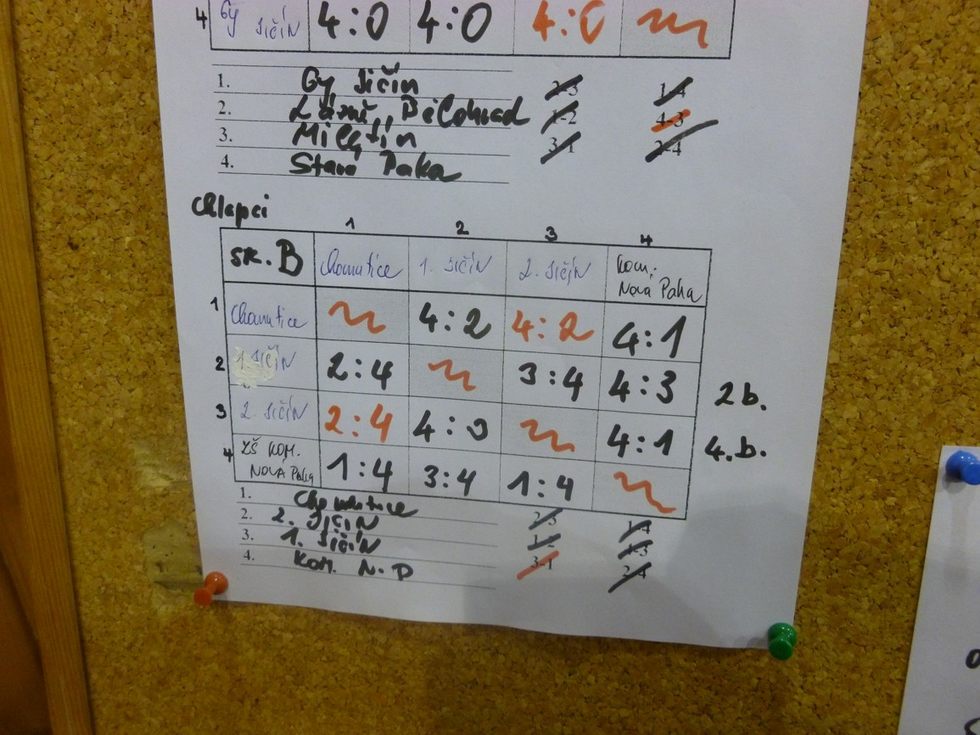 4 Gy Jičín 4:0 4:0 4:0
1. Gy Jičín 2-3 1-4
2. Lázně Bělohrad 1-2 4-3
3. Miletín 3-1 2-4
4. Stará Paka
Chlapci
1 2 3 4
sk. B Chomutice 1. Jičín 2. Jičín Kom. Nova Paka
1 Chomutice 4:2 4:2 4:1
2 1. Jičín 2:4 3:4 4:3 2b.
3 2. Jičín 2:4 4:3 4:1 4.b.
4 ZŠ KOM. NOVA PAKA 1:4 3:4 1:4
1. Chomutice 2-3 1-4
2. 2. Jičín 1-2 4-3
3. 1. Jičín 3-1 2-4
4. Kom. N.P